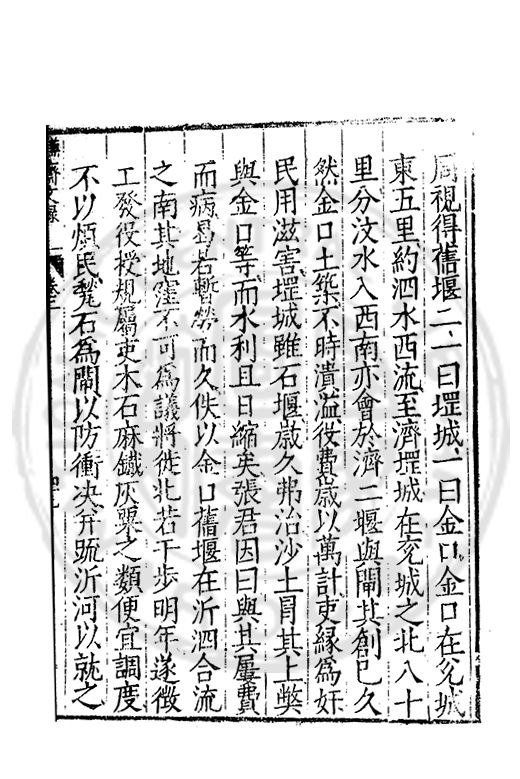 周視得舊堰二、一曰堽城、一曰金口、金口在兖城
東五里約泗水西流至濟堽城在兖城之北八十
里分汶水入西南亦會於濟二堰與閘其創已久
然金口土築不時潰溢役費歲以萬計吏緣為奸
民用滋害堽城雖石堰歲久弗治沙土冐其上獘
與金口等而水利且日縮矣張君因曰與其屢費
而病曷若暫勞而久佚以金口舊堰在沂泗合流
之南其地窪不可為議將徙北若干步明年遂徴
工發役授規屬吏木石麻鐵灰粟之類便宜調度
不以煩民甃石為閘以防衝決并䟽沂河以就之